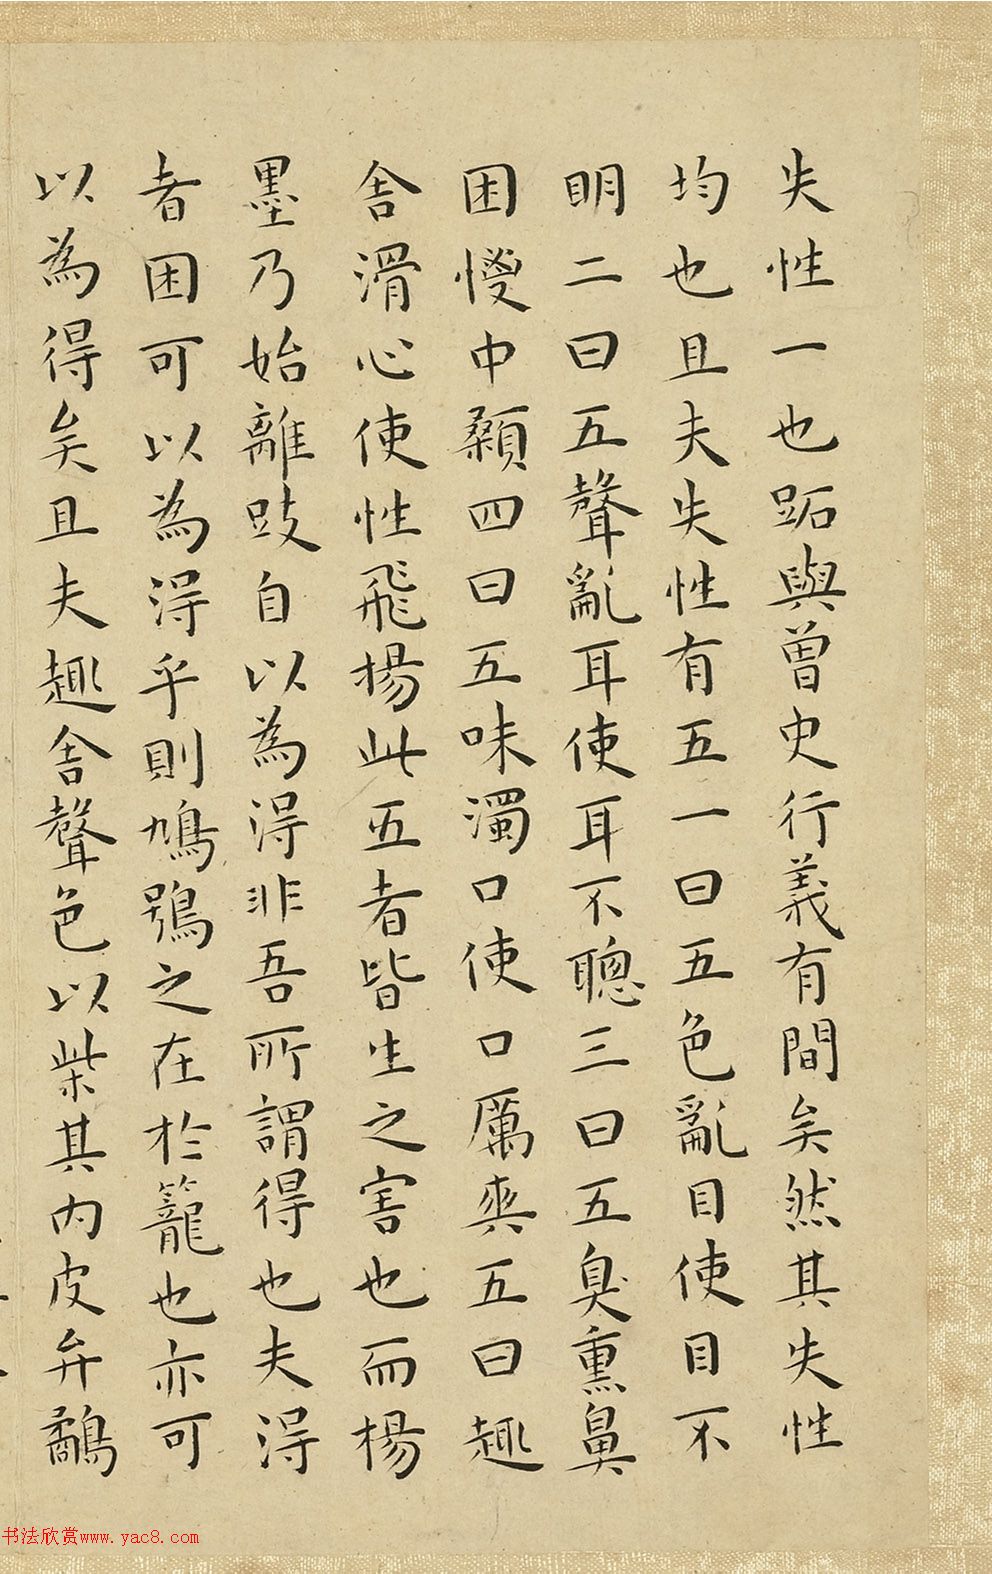 失性一也跖與曾史行義有間矣然其失性
均也且夫失性有五一曰五色亂目使目不
明二曰五聲亂耳使耳不聰三曰五臭熏鼻
困惾中顙四曰五味濁口使口厲爽五曰趣
舍滑心使性飛揚此五者皆生之害也而楊
墨乃始離跂自以為得非吾所謂得也夫得
者困可以為得乎則鳩鴞之在於籠也亦可
以為得矣且夫趣舍聲色以柴其內皮弁鷸
书法欣赏www.yac8.com